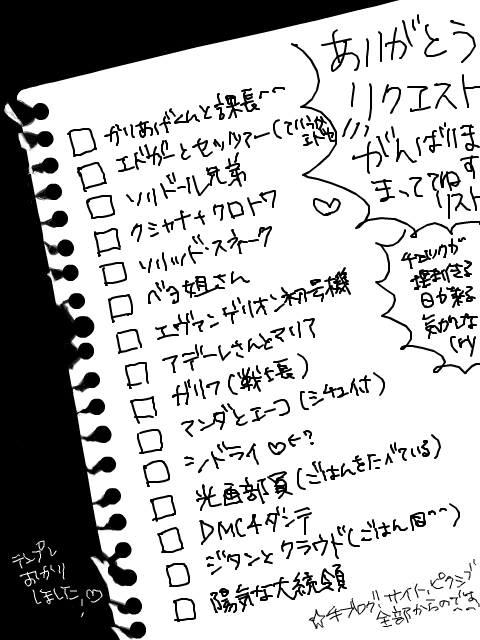 ありがとう
リクエスト
がんばりま
す
まっててね
リスト
かりあげくんと課長^^
エドガーとセッツァー(
ソリドール兄弟
クシャナ+クロトワ
ソリッド・スネーク
ベヨ姐さん
エヴァンゲリオン初号機
アデーレさんとマリア
ガリフ(戦士長)
マンダとエーコ(シチュ付)
シドライ♡←?
光画部員(ごはんをたべている)
DMC4ダンテ
ジタンとクラウド(ごはん同^^)
陽気な大統領
チェックが
埋まりきる
日が来る
気がしな
(ry
テンプレ
おかり
しました♡
☆手ブログ!サイト、ピクシブ
全部からのです